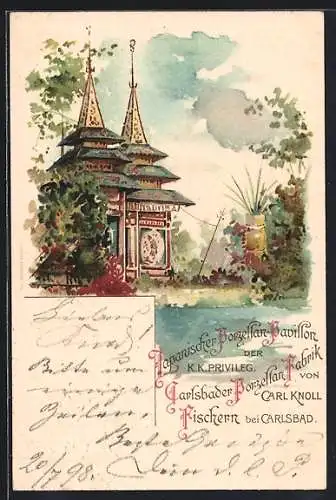 Japanischer Porzellan-Pavillon
DER
K.K. PRIVILEG.
Carlsbader Porzellan Fabrik
VON
CARL KNOLL
Fischern bei CARLSBAD.
Liebes
Kind!
Bitte um
einige
Zeilen.
Beste Grüsse
20/7 98. Dein